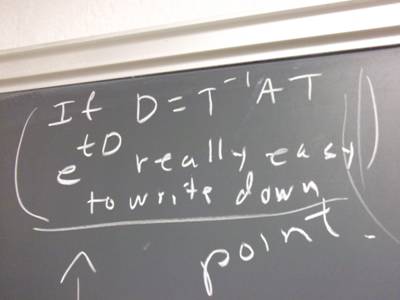 (If D = T⁻¹AT
e^tD really easy
to write down)
↑ point.